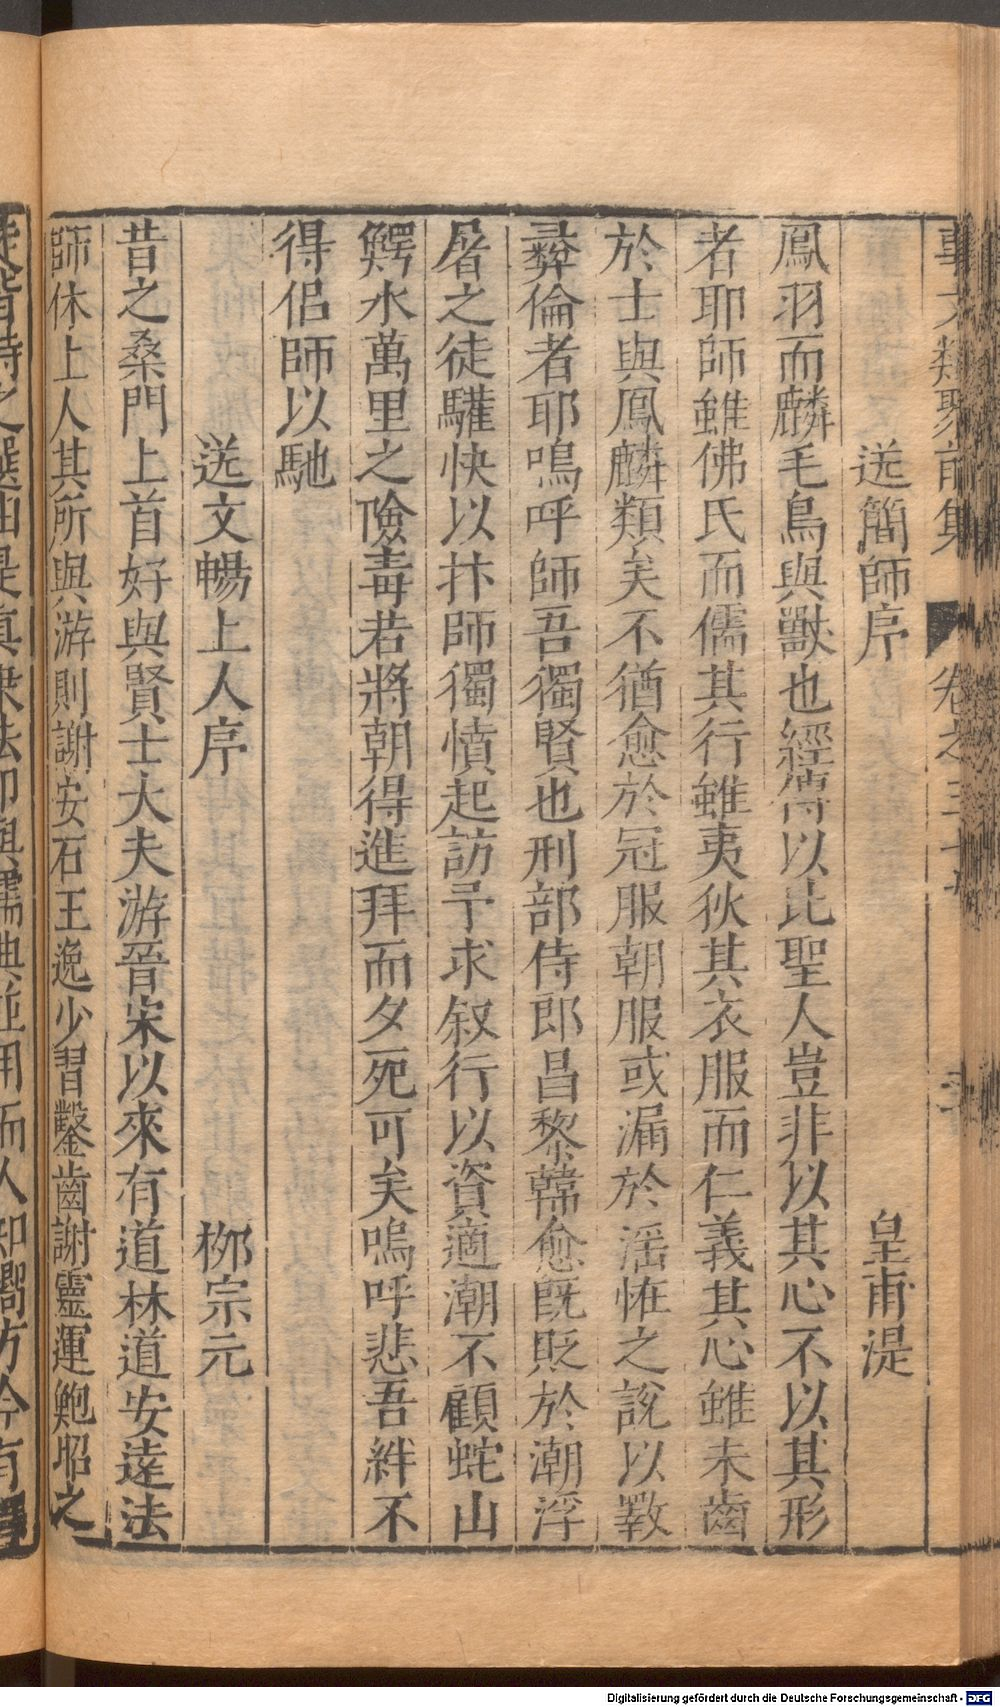 事文類聚前集 卷之三十
送簡師序 皇甫湜
鳳羽而麟毛鳥與獸也經傳以比聖人豈非以其心不以其形
者耶師雖佛氏而儒其行雖夷狄其衣服而仁義其心雖未齒
於士與鳳麟類矣不猶愈於冠服朝服或漏於滛恠之說以斁
彛倫者耶嗚呼師吾獨賢也刑部侍郎昌黎韓愈既貶於潮浮
屠之徒驩快以抃師獨憤起訪予求叙行以資適潮不顧蛇山
鰐水萬里之險毒若將朝得進拜而夕死可矣嗚呼悲吾絆不
得侣師以馳
送文暢上人序 栁宗元
昔之桑門上首好與賢士大夫游晉宋以來有道林道安遠法
師休上人其所與游則謝安石王逸少習鑿齒謝靈運鮑昭之
徒皆時之選由是真乗法印與儒典並用而人知嚮方今有釋
Digitalisierung gefördert durch die Deutsche Forschungsgemeinschaft - DFG